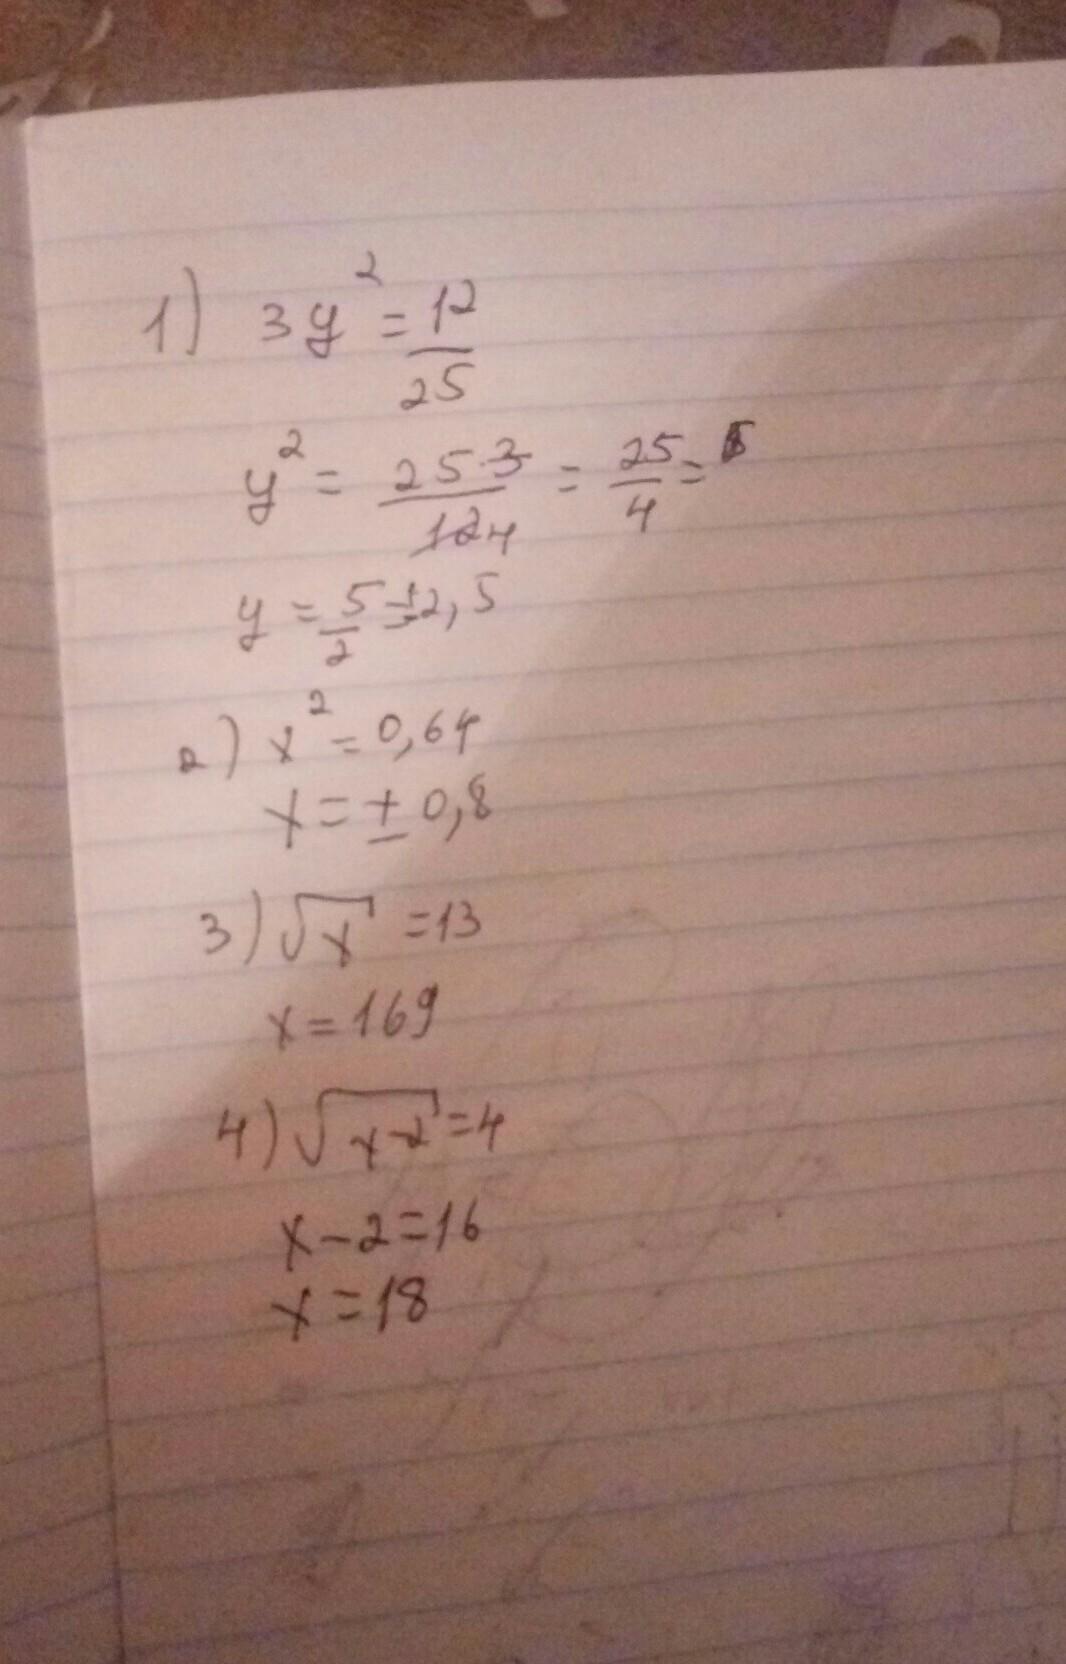 1) 3y² = 12/25
y² = 25·3/12 4 = 25/4 =
y = 5/2 = ±2,5
2) x² = 0,64
x = ± 0,8
3) √x = 13
x = 169
4) √x-2 = 4
x - 2 = 16
x = 18